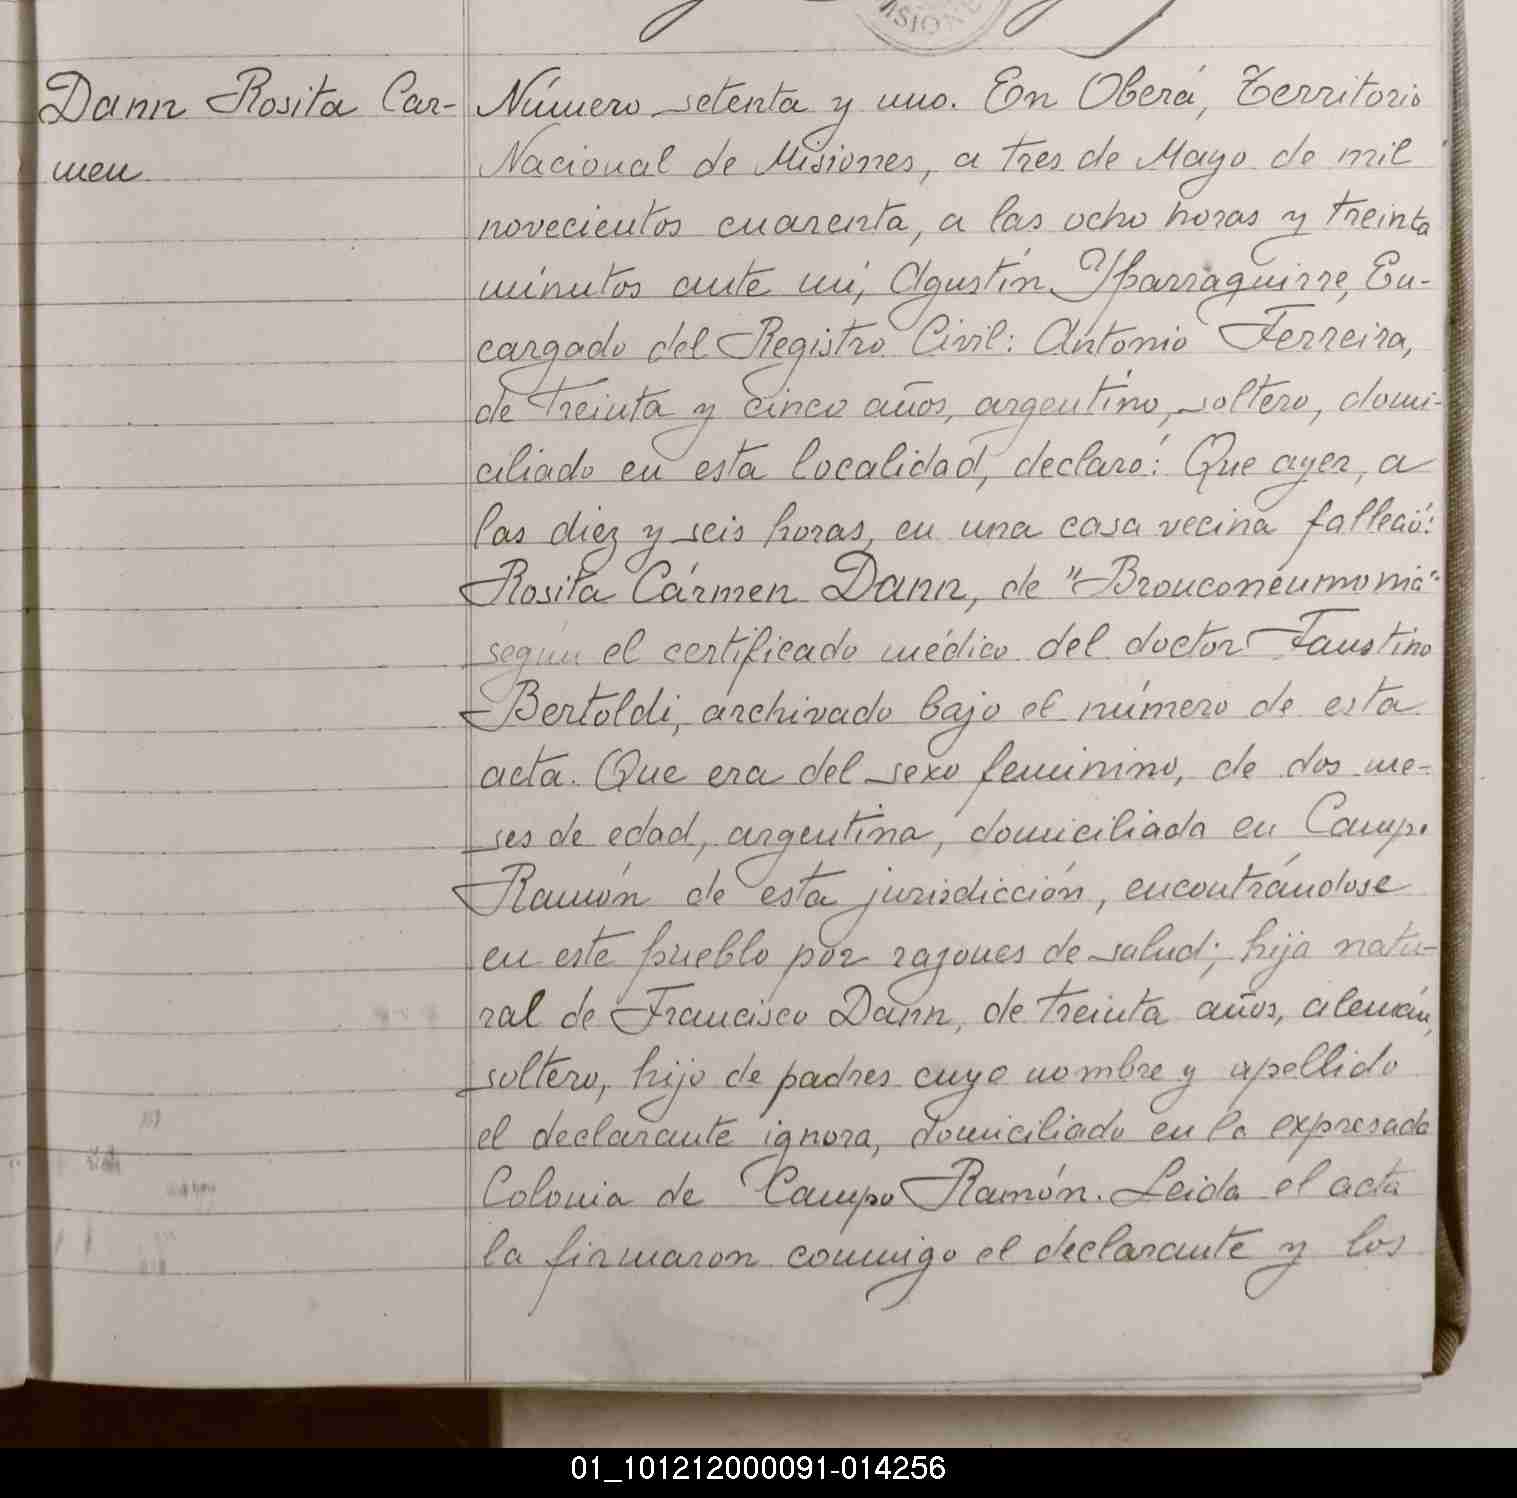 MISIONE
Dann Rosita Car-
men
Número setenta y uno. En Oberá, Territorio
Nacional de Misiones, a tres de Mayo de mil
novecientos cuarenta, a las ocho horas y treinta
minutos ante mí, Agustín Yparraguirre, En-
cargado del Registro Civil: Antonio Ferreira,
de treinta y cinco años, argentino, soltero, domi-
ciliado en esta localidad, declaró: Que ayer, a
las diez y seis horas, en una casa vecina falleció:
Rosita Cármen Dann, de "Bronconeumonia"
según el certificado médico del doctor Faustino
Bertoldi, archivado bajo el número de esta
acta. Que era del sexo feminino, de dos me-
ses de edad, argentina, domiciliada en Campo
Ramón de esta jurisdicción, encontrándose
en este pueblo por razones de salud; hija natu-
ral de Francisco Dann, de treinta años, alemán,
soltero, hijo de padres cuyo nombre y apellido
el declarante ignora, domiciliado en la expresada
Colonia de Campo Ramón. Leida el acta
la firmaron conmigo el declarante y los
01_101212000091-014256